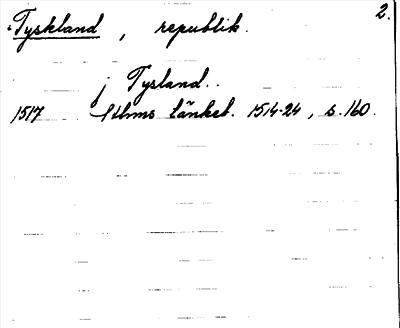 2.
Tyskland, republik.
j Tysland..
1517 Sthms tänkeb. 1514-24, s. 160.